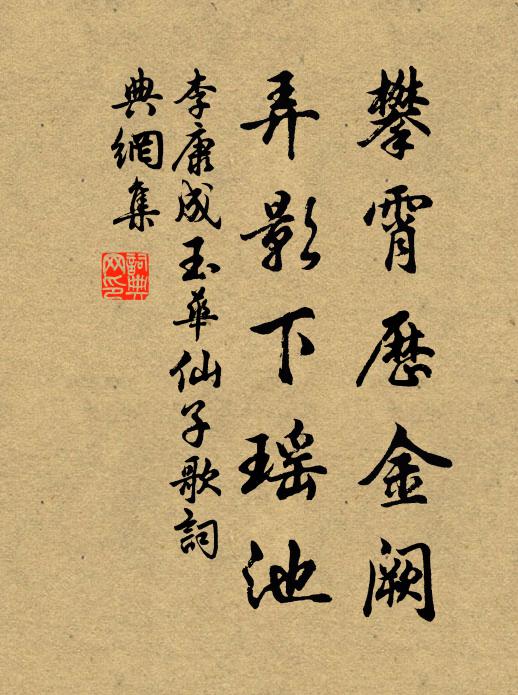 攀霄歷金阙
弄影下瑶池
李康成玉華仙子歌詞
典網集
詞典網印